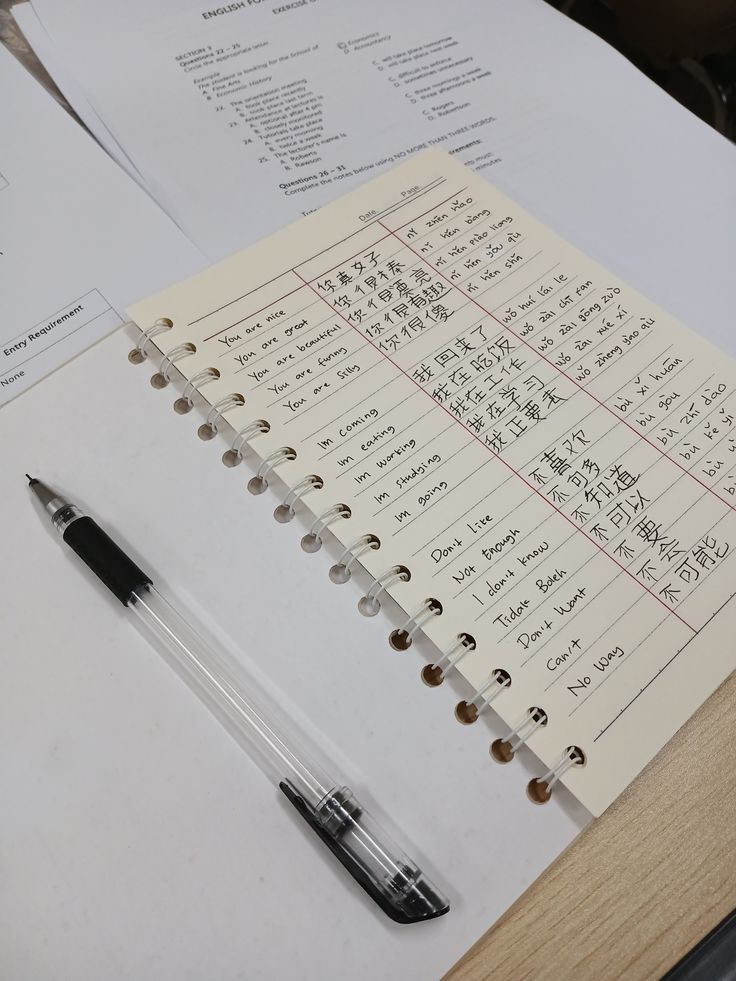 ENGLISH FO
EXERCISE
SECTION 3
Questions 22 – 25
Circle the appropriate letter.
Example
The student is looking for the School of
A. Fine Arts
B. Economic History
C Economics
D. Accountancy
22. The orientation meeting
A. took place recently
B. took place last term
C. will take place tomorrow
D. will take place next week
23. Attendance at lectures is
A. optional after 4 pm
B. closely monitored
C. difficult to enforce
D. sometimes unnecessary
24. Tutorials take place
A. every morning
B. twice a week
C. three mornings a week
D. three afternoons a week
25. The lecturer's name is
A. Roberts
B. Rawson
C. Rogers
D. Robertson
Questions 26 – 31
Complete the notes below using NO MORE THAN THREE WORDS.
Entry Requirement
None
Date Page
You are nice 你真好 nǐ zhēn hǎo
You are great 你很棒 nǐ hěn bàng
You are beautiful 你很漂亮 nǐ hěn piào liang
You are funny 你很有趣 nǐ hěn yǒu qù
You are silly 你很傻 nǐ hěn shǎ
Im coming 我回来了 wǒ huí lái le
Im eating 我在吃饭 wǒ zài chī fàn
Im working 我在工作 wǒ zài gōng zuò
Im studying 我在学习 wǒ zài xué xí
Im going 我正要去 wǒ zhèng yào qù
Don't Like 不喜欢 bù xǐ huān
Not Enough 不够 bù gòu
I don't know 不知道 bù zhī dào
Tidak Boleh 不可以 bù kě yǐ
Don't Want 不要 bù
Can't 不会 bù
No Way 不可能